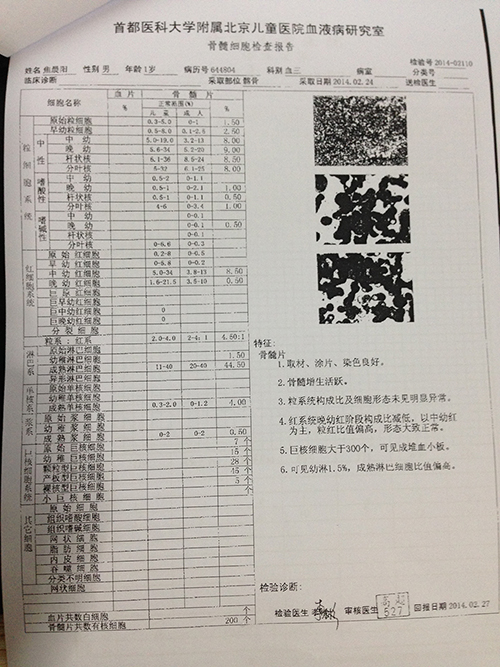 首都医科大学附属北京儿童医院血液病研究室
骨髓细胞检查报告
检验号 2014-02110
姓名 焦晨阳 性别 男 年龄 1岁 病历号 644804 科别 血三 病室 分类号
临床诊断 采取部位 髂骨 采取日期 2014.02.24 送检医生
细胞名称 血片 骨髓片
% 正常范围(%) %
儿童 成人
粒细胞系统
原始粒细胞 0.3-5.0 0-1 1.50
早幼粒细胞 0.5-8.0 0.1-2.5 2.50
中性 中幼 5.0-19.0 3.2-13 8.00
晚幼 5.6-34 5.2-20 9.00
杆状核 6.1-36 8.5-24 8.50
分叶核 5-32 6.1-25 8.00
嗜酸性 中幼 0.5-2 0-1.1
晚幼 0.5-1 0-2.1 1.00
杆状核 0.5-1 0-1.1 0.50
分叶核 4-6 0-3.4 1.00
嗜碱性 中幼 0-0.1
晚幼 0-0.1 0.50
杆状核 0-0.1
分叶核 0-6.6 0-0.3
红细胞系统
原始红细胞 0.2-8 0-0.5
早幼红细胞 0-5.8 0-0.2
中幼红细胞 5.0-34 3.8-13 8.50
晚幼红细胞 1.6-21.5 3.5-10 0.50
巨原红细胞
巨早幼红细胞
巨中幼红细胞 0
巨晚幼红细胞 0
分裂细胞
粒系：红系 2.0-4.0 2-4:1 4.50:1
淋巴系
原始淋巴细胞
幼稚淋巴细胞 1.50
成熟淋巴细胞 11-40 20-40 44.50
异形淋巴细胞
单核系
原始单核细胞
幼稚单核细胞
成熟单核细胞 0.3-2.0 0-1.2 4.00
浆系
原始浆细胞
幼稚浆细胞
成熟浆细胞 0-2 0-2 0.50
巨核细胞系统
原始巨核细胞 7个
幼稚巨核细胞 15个
颗粒型巨核细胞 28个
产板型巨核细胞 45个
裸核型巨核细胞 5个
小巨核细胞 个
其它细胞
原始细胞
组织嗜酸细胞
组织嗜碱细胞
网状细胞
脂肪细胞
内皮细胞
吞噬细胞
分类不明细胞
网状细胞
血片共数白细胞 个
骨髓片共数有核细胞 200个
特征:
骨髓片
1.取材、涂片、染色良好。
2.骨髓增生活跃。
3.粒系统构成比及细胞形态未见明显异常。
4.红系统晚幼红阶段构成比减低，以中幼红
为主，粒红比值偏高，形态大致正常。
5.巨核细胞大于300个，可见成堆血小板。
6.可见幼淋1.5%，成熟淋巴细胞比值偏高。
检验诊断:
检验医生 审核医生 527 回报日期 2014.02.27